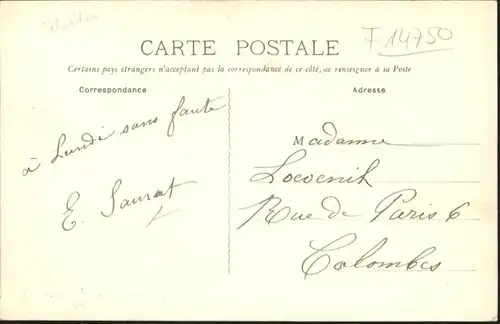 F 14750
CARTE POSTALE
Certains pays étrangers n'acceptant pas la correspondance de ce côté, se renseigner à la Poste
Correspondance
à Lundi sans faute
E. Saurat
Adresse
Madame
Rue de Paris 6
Colombes